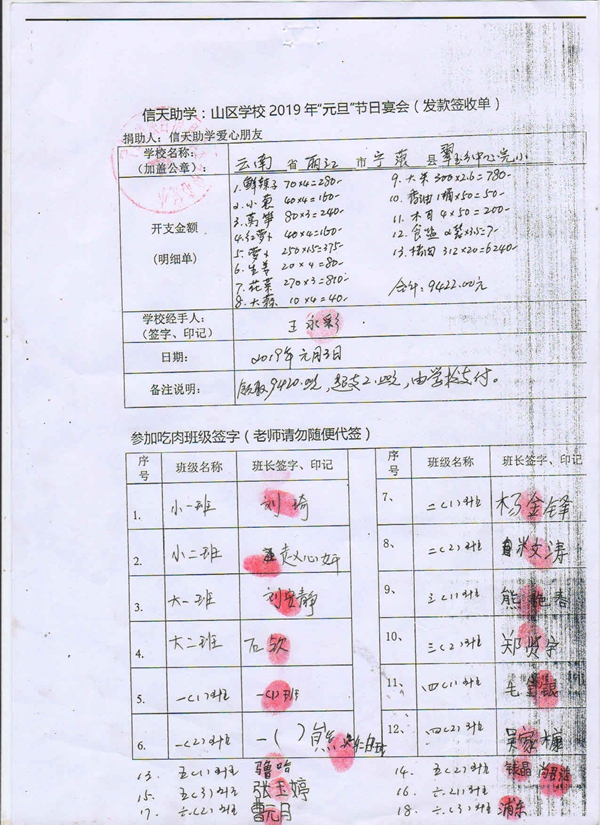 信天助学：山区学校2019年“元旦”节日宴会（发款签收单）
捐助人：信天助学爱心朋友
学校名称：
（加盖公章）：
云南 省 丽江 市 宁蒗 县 翠玉乡中心完小
开支金额
(明细单)
1. 70×4=280-
2. 小葱 40×4=160-
3. 莴笋 80×3=240-
4. 红萝卜 40×4=160-
5. 萝卜 250×1.5=375-
6. 生姜 20×4=80-
7. 花菜 270×3=810-
8. 大蒜 10×4=40-
9. 大米 300×2.6=780-
10. 香油 1桶×50=50-
11. 木耳 4×50=200-
12. 食盐 2袋×3.5=7-
13. 猪肉 312×20=6240-
合计：9422.00元
学校经手人：
(签字、印记)
王永彩
日期：
2019年元月3日
备注说明：
领取9420.00元，超支2.00元，由学校支付。
参加吃肉班级签字（老师请勿随便代签）
序号 班级名称 班长签字、印记 序号 班级名称 班长签字、印记
1. 小一班 刘琦
7、 二(1)班 杨金锋
2. 小二班 赵心妍
8、 二(2)班 文涛
3. 大一班 刘 静
9、 三(1)班 熊艳春
4. 大二班 石钦
10、 三(2)班 郑 宇
5. 一(1)班 一(1)班
11、 四(1)班 毛 银
6. 一(2)班 一( ) 熊
12、 四(2)班 吴家
13. 五(1)班 鲁哈
14. 五(2)班 银晶
15. 五(3)班 张玉婷
16. 六(1)班
17. 六(2)班 曹元月
18. 六(3)班 浦东